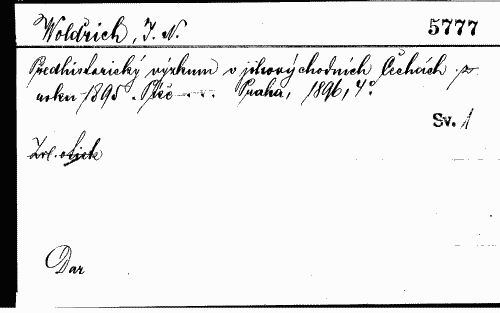 Woldrich, J. N. 5777
Předhistorický výzkum v jihovýchodních Čechách z
roku 1895. Píše .... Praha, 1896, 4°.
Sv. 1
Zvl. otisk
Dar